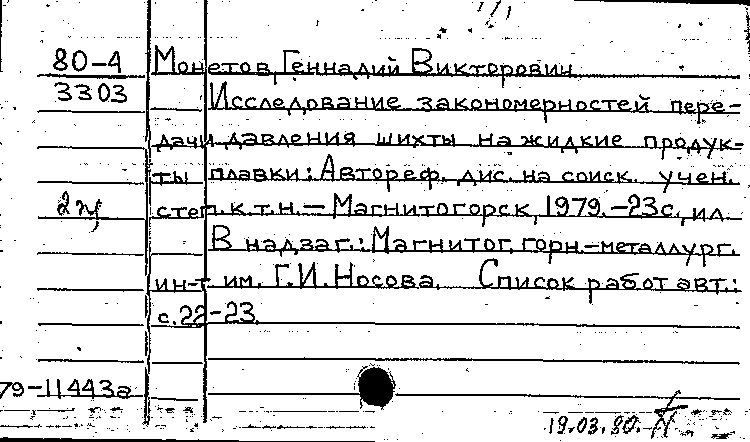 80-4 Монетов, Геннадий Викторович
3303 Исследование закономерностей пере-
дачи давления шихты на жидкие продук-
ты плавки: Автореф. дис. на соиск. учен.
степ. к.т.н. – Магнитогорск, 1979. – 23с., ил.
В надзаг.: Магнитог. горн.-металлург.
ин-т им. Г.И. Носова. Список работ авт.:
с. 22-23.
79-11443а
19.03.80.